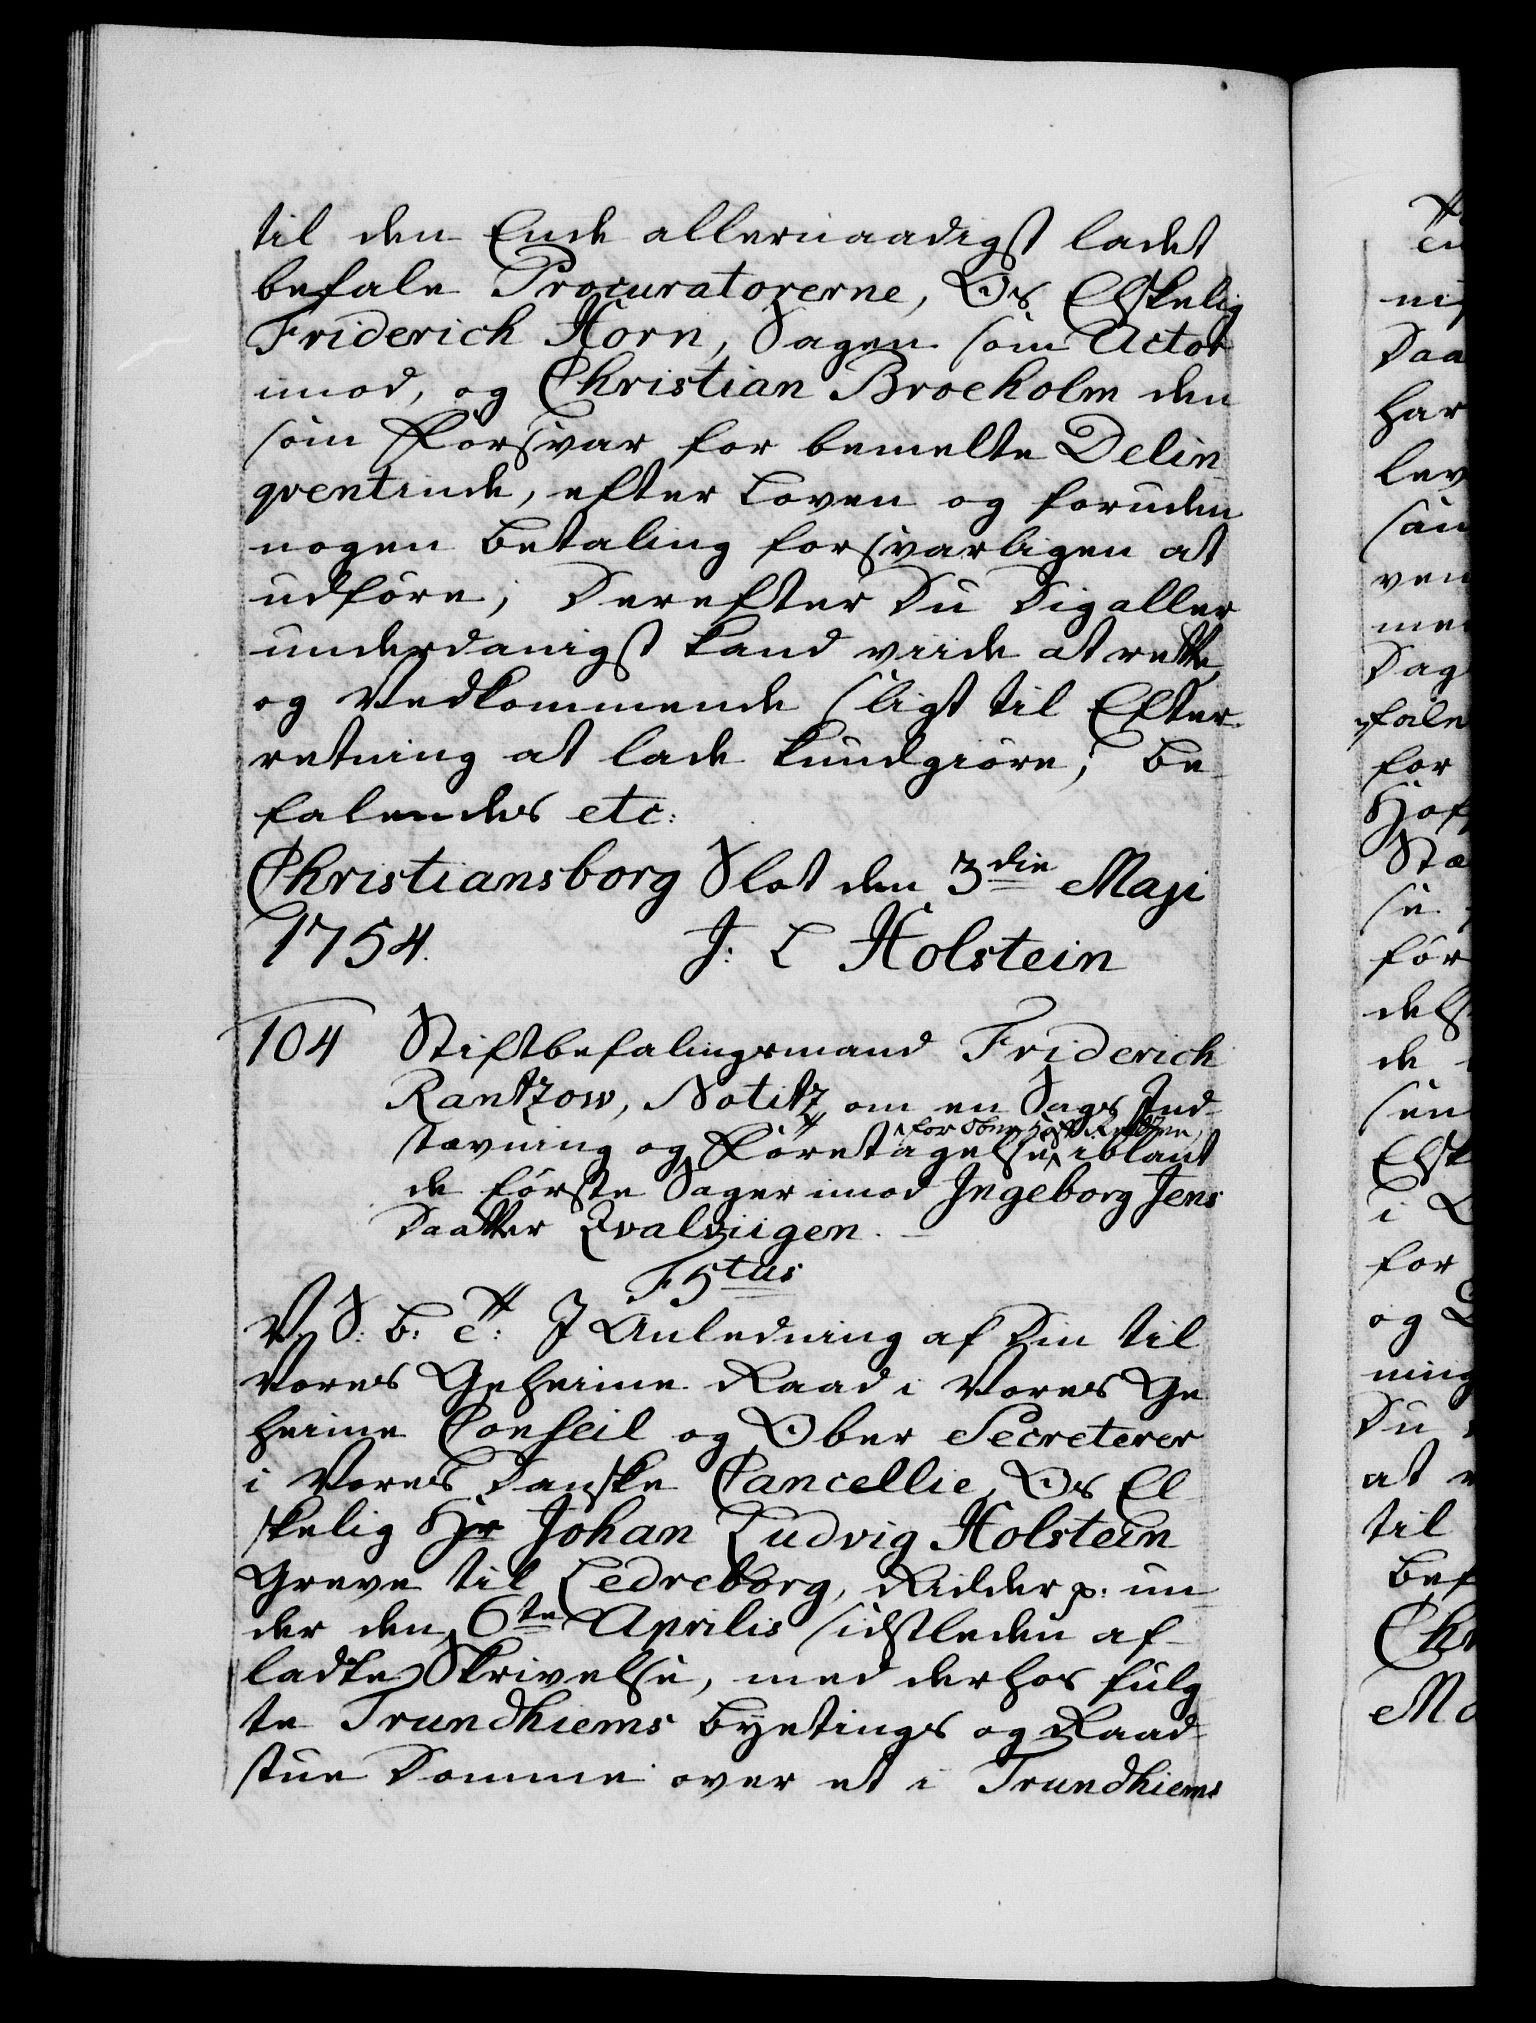 til den Ende allernaadigst ladet
befale Procuratorerne, Os Elskelig
Friderich Horn, Sagen som Actor
imod, og Christian Brockholm den
som Forsvar for bemelte Delin
qventinde, efter Loven og foruden
nogen Betaling forsvarligen at
udføre; Derefter Du Dig aller
underdanigst kand viide at rette,
og Vedkommende sligt til Efter-
retning at lade kundgiøre; Be
falendes etc:
Christiansborg Slot den 3die Maji
1754. J: L Holstein
104 Stiftbefalingsmand Friderich
Rantzow, Notitz, om en Sags Ind-
stævning og Foretagelse, for Øverste Rætten, iblant
de første Sager imod Ingeborg Jens
Daatter Qvalviigen.
F5tus
V S: B: C: I Anledning af Din til
Vores Geheime Raad i Vores Ge
heime Conseil og Ober Secreterer
i Vores Danske Cancellie, Os El
skelig Hr Johan Ludvig Holstein
Greve til Ledreborg, Ridder p: un
der den 6te Aprilis sidstleden af-
ladte Skrivelse, med derhos fulg
te Trundhiems Byetings og Raad-
stue Domme over et i Trundhiems